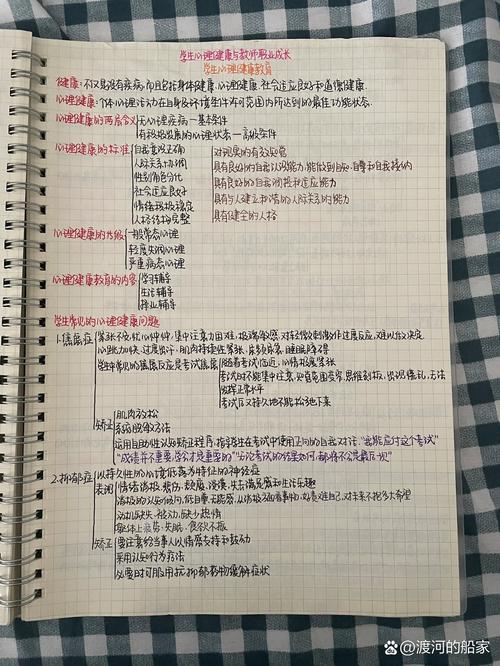 学生心理健康与教师职业成长
学生心理健康教育
健康：不仅是没有疾病，而且包括身体健康、心理健康、社会适应良好和道德健康.
心理健康：个体心理活动在自身及环境条件许可范围内所达到的最佳功能状态.
心理健康的两层含义 无心理疾病—基本条件
有积极发展的心理状态—高级条件
心理健康的标准 自我意识正确 对现实的有效知觉
人际关系协调 具有良好的自我认识能力,能做到自知、自尊和自我接纳
性别角色分化 具有良好的自我调控和适应能力
社会适应良好 具有与人建立和谐的人际关系的能力
情绪积极稳定 具有健全的人格
人格结构完整
心理健康的等级 一般常态心理
轻度失调心理
严重病态心理
心理健康教育的内容 学习辅导
生活辅导
择业辅导
学生常见的心理健康问题
1.焦虑症 紧张不安,忧心忡忡,集中注意力困难,极端敏感,对轻微刺激作过度反应,难以做决定.
心跳加快,过度出汗,肌肉持续性紧张,尿频尿急,睡眠障碍
学生中常见的焦虑反应是考试焦虑 随着考试临近,心情极度紧张
考试时不能集中注意,知觉范围变窄,思维刻板,出现慌乱,无法
发挥正常水平
考试后又持久地不能松弛下来
矫正 肌肉放松
系统脱敏方法
运用自助性认知矫正程序,指导学生在考试中使用正向的自我对话,"我能应付这个考试"
"成绩并不重要,学会才是重要的""无论考试的结果如何,都将不会是最后一次"
2.抑郁症 以持久性的心境低落为特征的神经症
表现 情绪消极、悲伤、颓废、淡漠,失去满足感和生活乐趣
消极的认知倾向,低自尊无能感,从消极方面看事物,好责难自己,对未来不抱多大希望
动机缺失、被动,缺少热情
躯体上疲劳、失眠、食欲不振
矫正 要注意给当事人以情感支持和鼓励
采用认知行为疗法
必要时可服用抗抑郁药物缓解症状
@渡河的船家